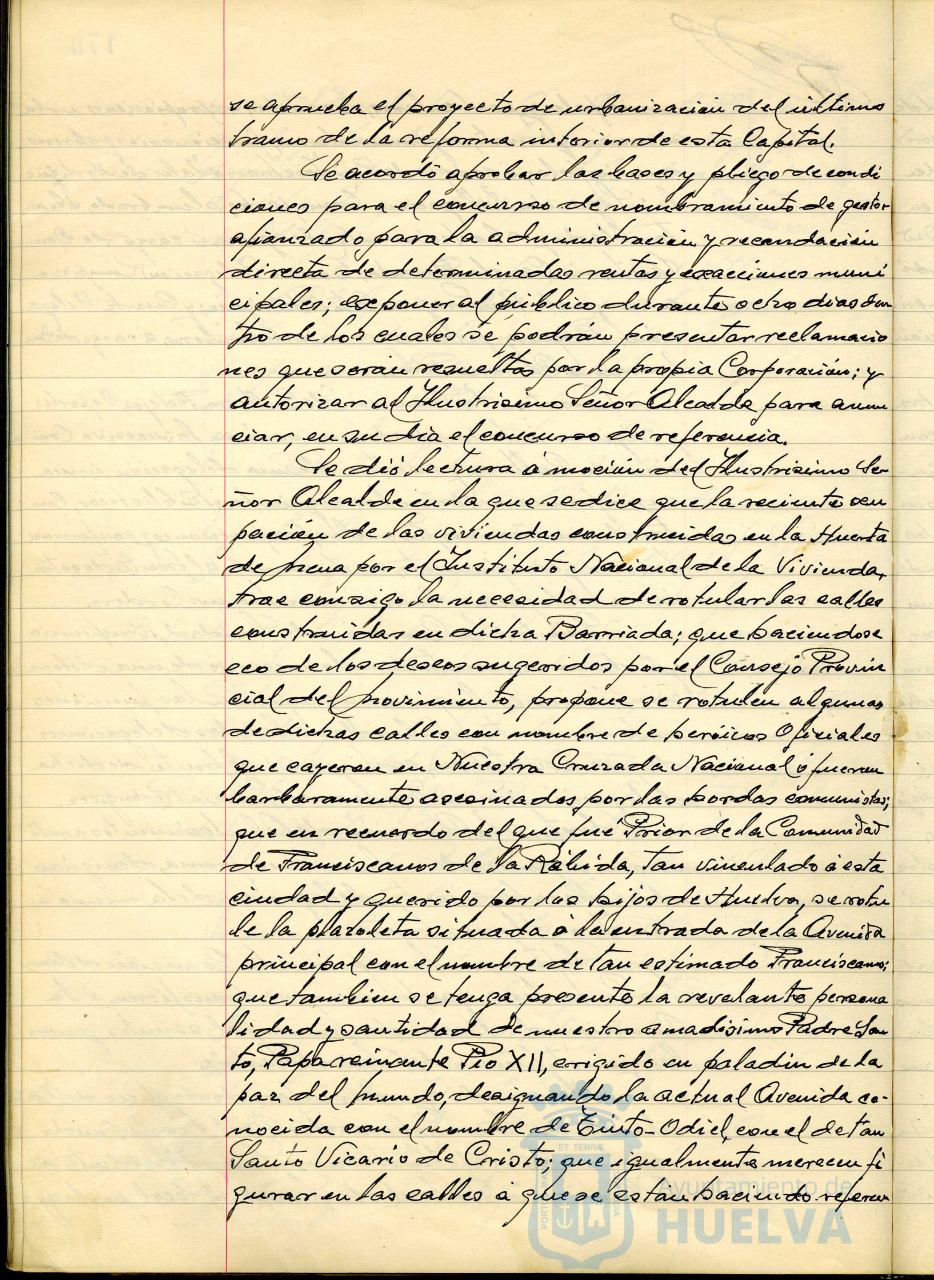 se aprueba el proyecto de urbanización del último
tramo de la reforma interior de esta Capital.
Se acordó aprobar las bases y pliego de condi
ciones para el concurso de nombramiento de gestor
afianzado, para la administración y recaudación
directa de determinadas rentas y exacciones muni
cipales; exponer al público durante ocho días den
tro de los cuales se podrán presentar reclamacio
nes que serán resueltas por la propia Corporación; y
autorizar al Ilustrísimo Señor Alcalde para anun
ciar, en su día el concurso de referencia.
Se dió lectura á moción del Ilustrísimo Se-
ñor Alcalde en la que se dice que la reciente ocu
pación de las viviendas construidas en la Huerta
de Mena por el Instituto Nacional de la Vivienda,
trae consigo la necesidad de rotular las calles
construidas en dicha Barriada; que haciendose
eco de los deseos sugeridos por el Consejo Provin
cial del Movimiento, propone se rotulen algunas
de dichas calles con nombre de heróicos Oficiales
que cayeron en Nuestra Cruzada Nacional ó fueron
barbaramente asesinados por las hordas comunistas;
que en recuerdo del que fué Prior de la Comunidad
de Franciscanos de la Rábida, tan vinculado á esta
ciudad y querido por los hijos de Huelva, se rotu
le la plazoleta situada á la entrada de la Avenida
principal con el nombre de tan estimado Franciscano;
que tambien se tenga presente la revelante persona
lidad y santidad de nuestro amadisimo Padre San
to, Papa reinante Pio XII, erigido en paladin de la
paz del Mundo, designando la actual Avenida co-
nocida con el nombre de Tinto-Odiel, con el de tan
Santo Vicario de Cristo; que igualmente merecen fi
gurar en las calles á que se estan haciendo referen
Ayuntamiento de
HUELVA